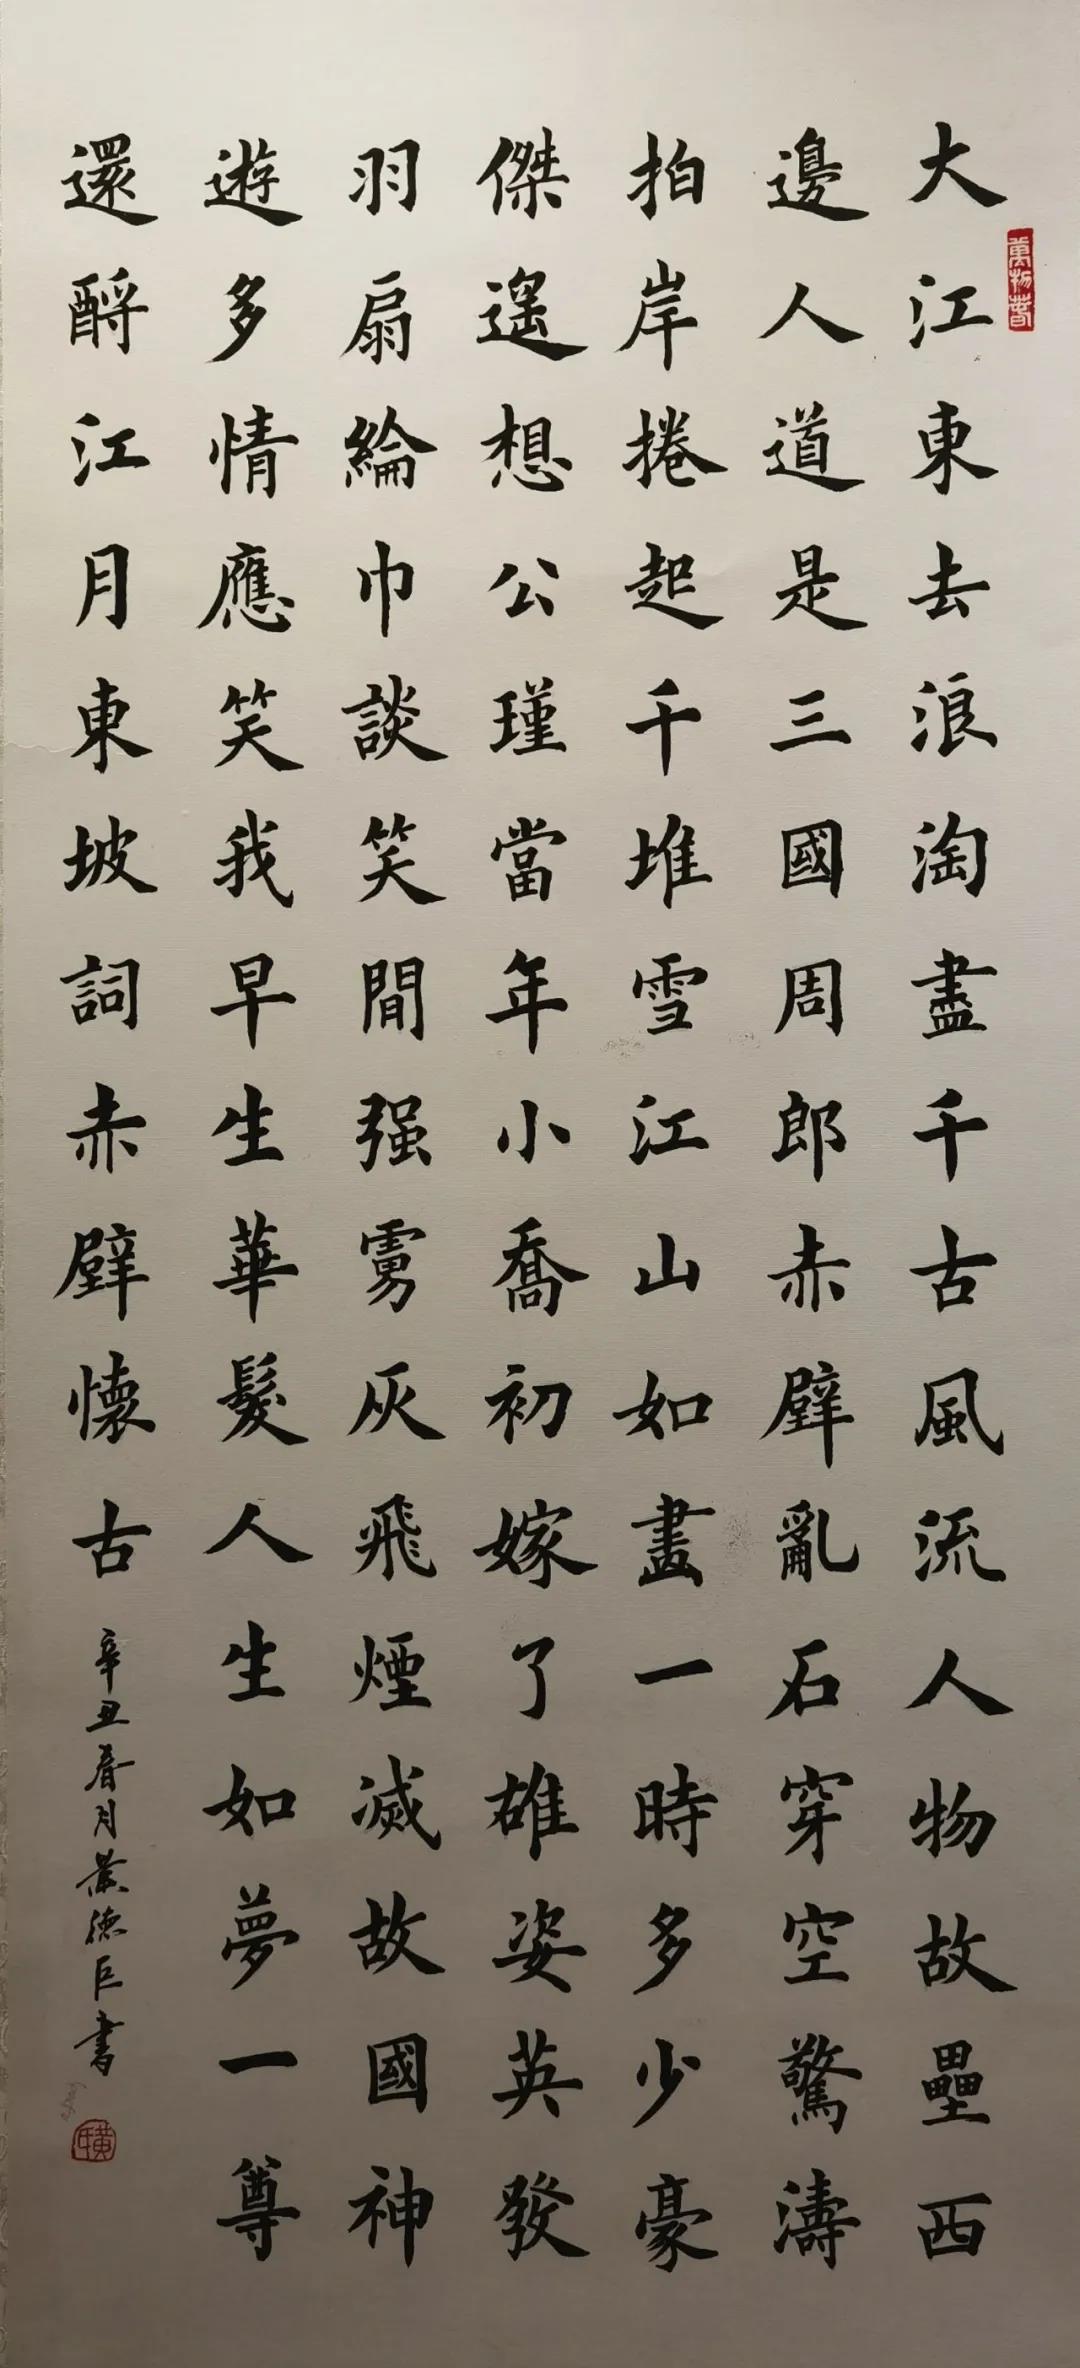 大江東去浪淘盡千古風流人物故壘西
邊人道是三國周郎赤壁亂石穿空驚濤
拍岸捲起千堆雪江山如畫一時多少豪
傑遙想公瑾當年小喬初嫁了雄姿英發
羽扇綸巾談笑間强虜灰飛煙滅故國神
遊多情應笑我早生華髮人生如夢一尊
還酹江月東坡詞赤壁懷古
辛丑春月黃德巨書